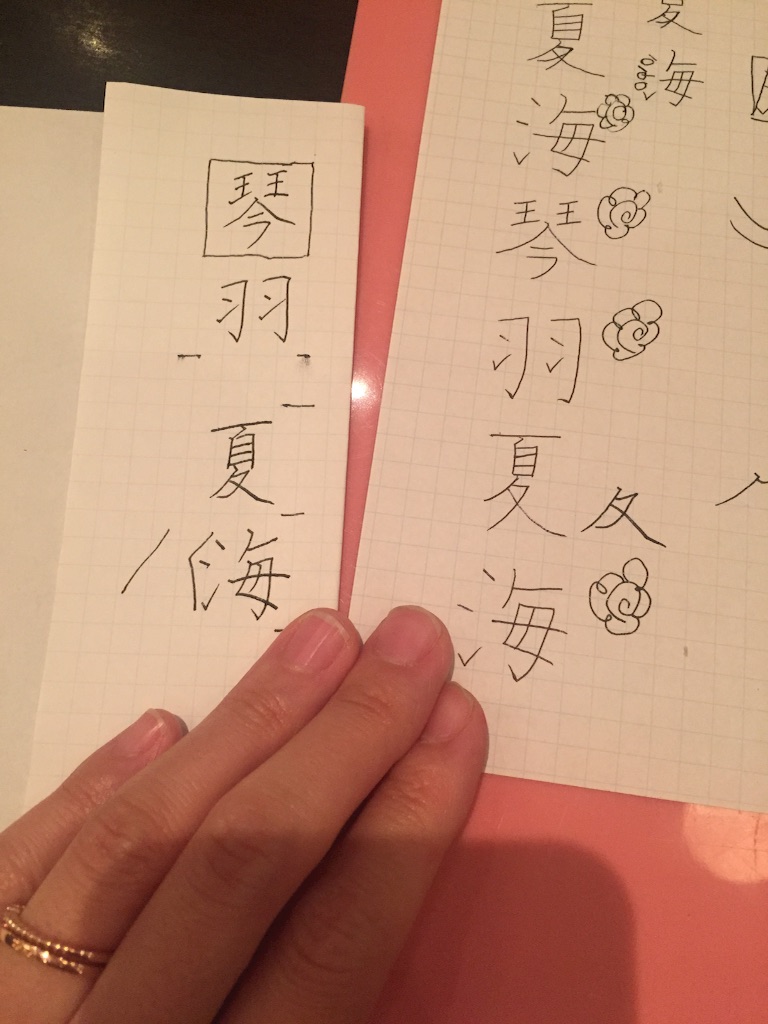 夏海
夏海琴羽夏海
夂
琴羽夏海